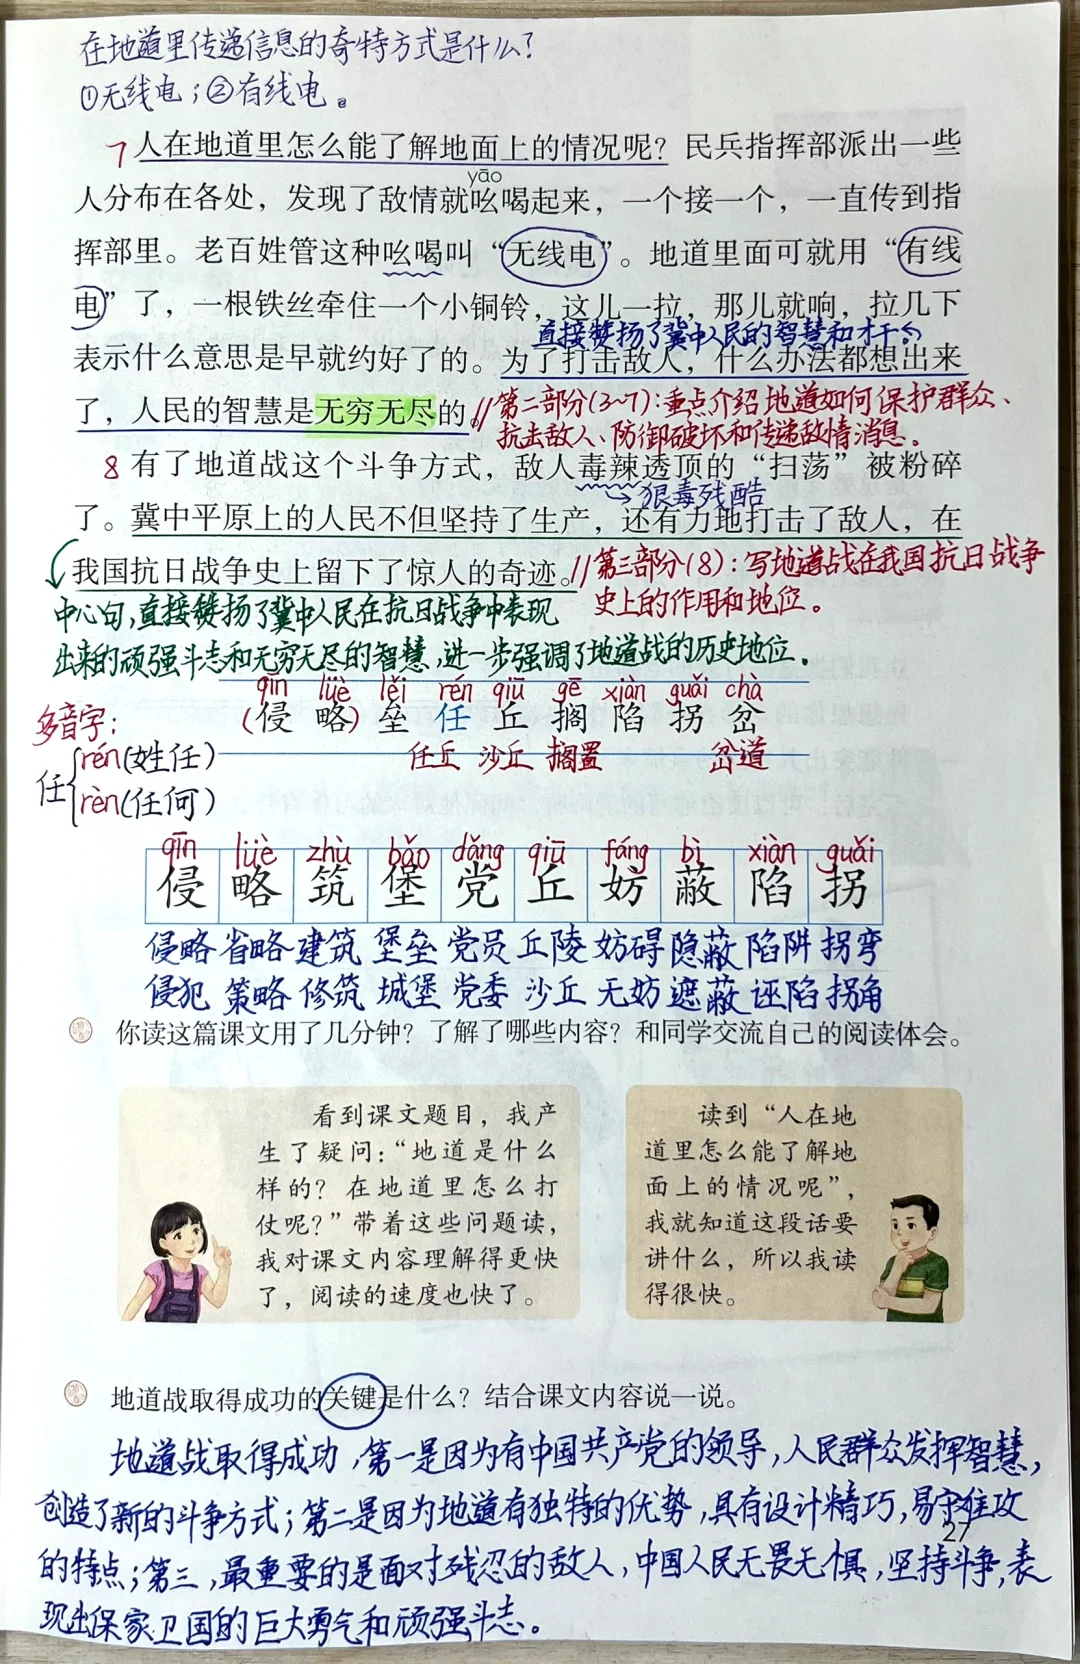 在地道里传递信息的奇特方式是什么?
①无线电;②有线电。
7 人在地道里怎么能了解地面上的情况呢?民兵指挥部派出一些
yāo
人分布在各处，发现了敌情就吆喝起来，一个接一个，一直传到指
挥部里。老百姓管这种吆喝叫“无线电”。地道里面可就用“有线
电”了，一根铁丝牵住一个小铜铃，这儿一拉，那儿就响，拉几下
直接赞扬了冀中人民的智慧和才干
表示什么意思是早就约好了的。为了打击敌人，什么办法都想出来
了，人民的智慧是无穷无尽的。//第二部分(3~7):重点介绍地道如何保护群众、
抗击敌人、防御破坏和传递敌情消息。
8 有了地道战这个斗争方式，敌人毒辣透顶的“扫荡”被粉碎
狠毒残酷
了。冀中平原上的人民不但坚持了生产，还有力地打击了敌人，在
我国抗日战争史上留下了惊人的奇迹。//第三部分(8):写地道战在我国抗日战争
史上的作用和地位。
中心句,直接赞扬了冀中人民在抗日战争中表现
出来的顽强斗志和无穷无尽的智慧,进一步强调了地道战的历史地位.
qīn lüè lěi rén qiū gē xiàn guǎi chà
(侵 略) 垒 任 丘 搁 陷 拐 岔
多音字:
任丘 沙丘 搁置 岔道
任{rén(姓任)
rèn(任何)
qīn lüè zhù bǎo dǎng qiū fáng bì xiàn guǎi
侵 略 筑 堡 党 丘 妨 蔽 陷 拐
侵略 省略 建筑 堡垒 党员 丘陵 妨碍 隐蔽 陷阱 拐弯
侵犯 策略 修筑 城堡 党委 沙丘 无妨 遮蔽 诬陷 拐角
你读这篇课文用了几分钟？了解了哪些内容？和同学交流自己的阅读体会。
看到课文题目，我产
生了疑问：“地道是什么
样的？在地道里怎么打
仗呢？”带着这些问题读，
我对课文内容理解得更快
了，阅读的速度也快了。
读到“人在地
道里怎么能了解地
面上的情况呢”，
我就知道这段话要
讲什么，所以我读
得很快。
地道战取得成功的关键是什么？结合课文内容说一说。
地道战取得成功,第一是因为有中国共产党的领导,人民群众发挥智慧,
创造了新的斗争方式;第二是因为地道有独特的优势,具有设计精巧,易守难攻
27
的特点;第三,最重要的是面对残忍的敌人,中国人民无畏无惧,坚持斗争,表
现出保家卫国的巨大勇气和顽强斗志。